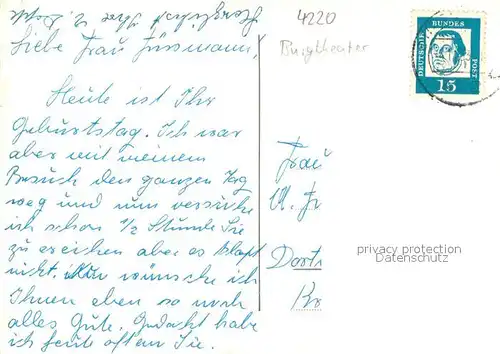 4220
Burgtheater
DEUTSCHE BUNDES POST
15
Liebe Frau Jüssmann,
Heute ist Ihr
Geburtstag. Ich war
aber mit meinem
Besuch den ganzen Tag
weg und nun versuche
ich schon 1/2 Stunde Sie
zu ereichen aber es klapt
nicht. Nun wünsche ich
Ihnen eben so noch
alles Gute. Gedacht habe
ich heute oft an Sie.
Herzlichst Ihre
Frau
Dort
privacy protection
Datenschutz